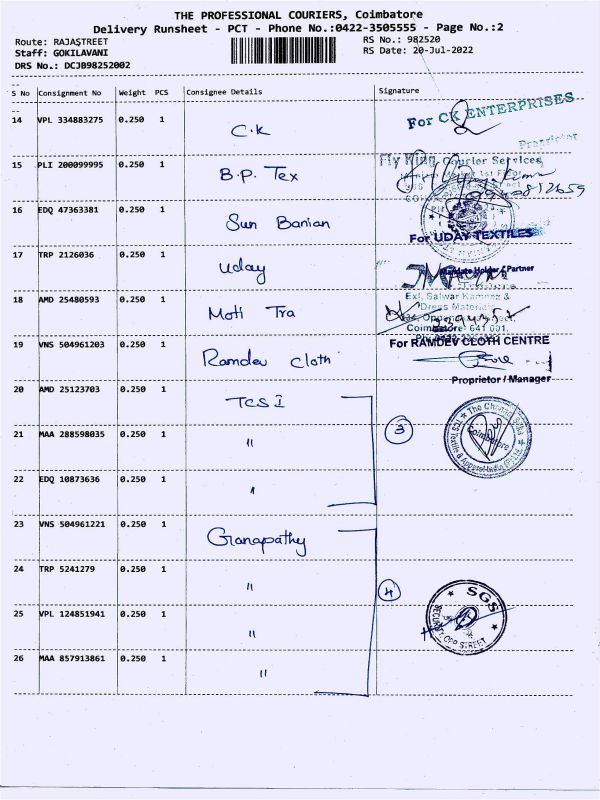 THE PROFESSIONAL COURIERS, Coimbatore
Delivery Runsheet - PCT - Phone No.:0422-3505555 - Page No.:2
Route: RAJASTREET
RS No.: 982520
Staff: GOKILAVANI
RS Date: 20-Jul-2022
DRS No.: DCJB98252002
S No Consignment No Weight PCS Consignee Details Signature
14 VPL 334883275 0.250 1 C.K
For CK ENTERPRISES
Proprietor
15 PLI 200099995 0.250 1 B.P. Tex
Fly King Courier Services
16 EDQ 47363381 0.250 1 Sun Banian
For UDAY TEXTILES
17 TRP 2126036 0.250 1 Uday
Mandate Holder / Partner
18 AMD 25480593 0.250 1 Moti Tra
Exl, Salwar Kameez &
Dress Material
Coimbatore 641 001.
19 VNS 504961203 0.250 1 Ramdev Cloth
For RAMDEV CLOTH CENTRE
Proprietor / Manager
20 AMD 25123703 0.250 1 TCS I
21 MAA 288598035 0.250 1 "
3
The Chennai Silks
Coimbatore
22 EDQ 10873636 0.250 1 "
23 VNS 504961221 0.250 1 Ganapathy
24 TRP 5241279 0.250 1 "
4
SGS
25 VPL 124851941 0.250 1 "
SECURITY, OPP STREET
26 MAA 857913861 0.250 1 "